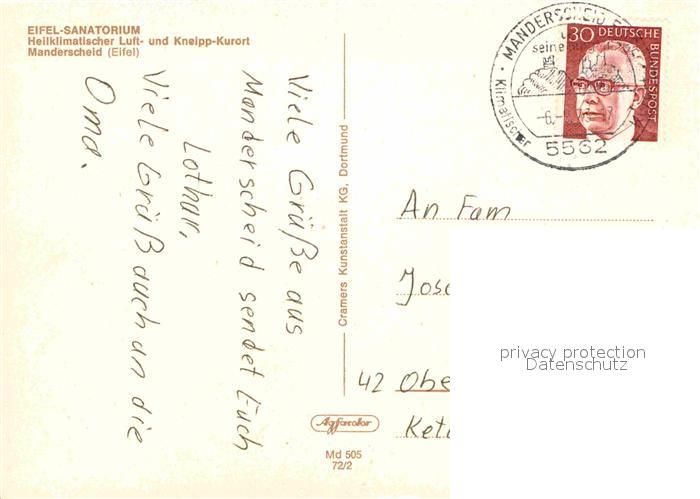 EIFEL-SANATORIUM
Heilklimatischer Luft- und Kneipp-Kurort
Manderscheid (Eifel)
Viele Grüße aus
Manderscheid sendet Euch
Lothar.
Viele Grüß auch an die
Oma.
Cramers Kunstanstalt KG. Dortmund
MANDERSCHEID
seine
Klimatischer
5562
30 DEUTSCHE
BUNDESPOST
An Fam
Jose
42 Obe
Kete
privacy protection
Datenschutz
Agfacolor
Md 505
72/2